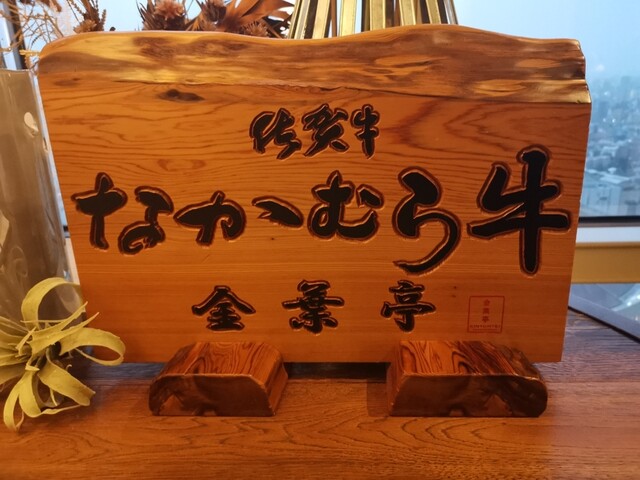 佐賀牛
なかむら牛
金葉亭